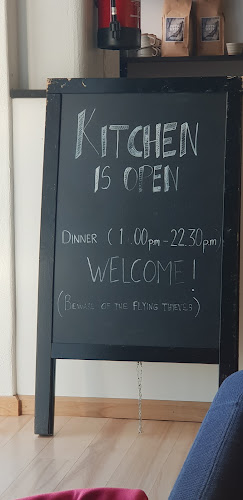 KITCHEN
IS OPEN
DINNER (1 .00pm - 22.30p.m)
WELCOME!
(BEWARE OF THE FLYING THIEVES)